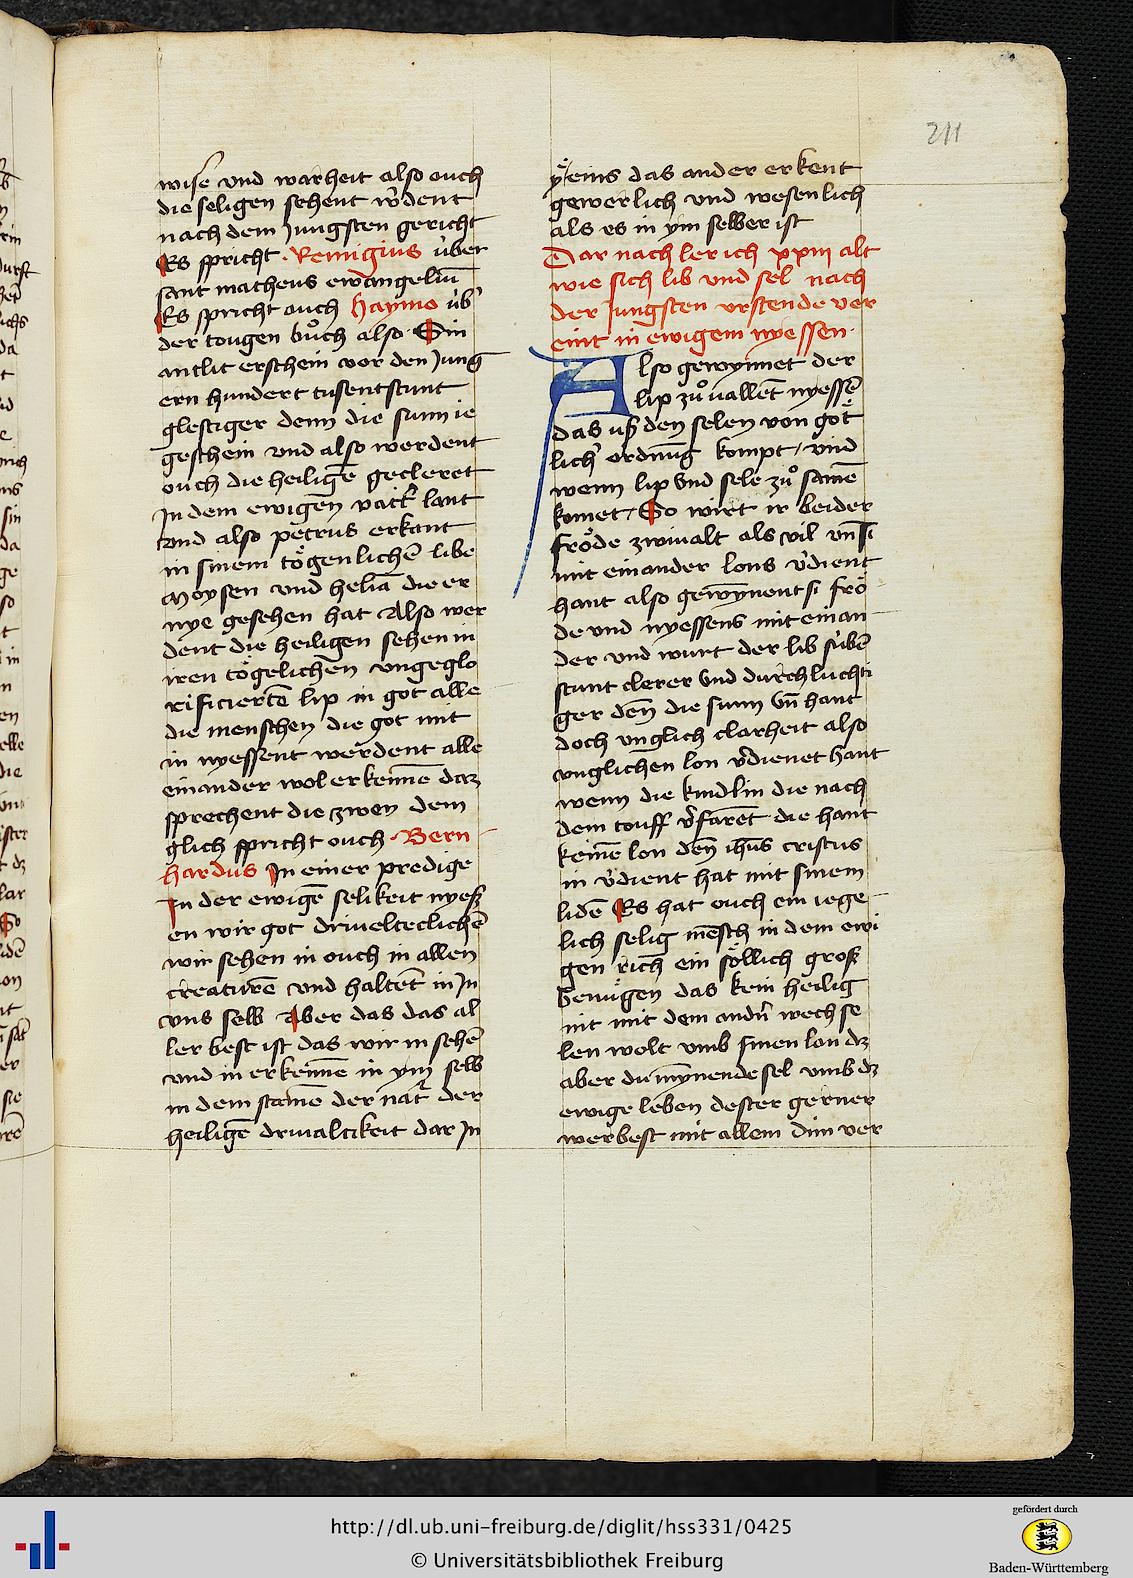 211
wise vnd warheit also ouch
die seligen sehent v̾dent
nach dem Jungsten gericht
Es spricht · Remigius úber
sant matheus ewangeliū
Es spricht ouch Haymo úb̾
der tougen bůch also · Sin
antlit erschein vor den Jung
ern hundert tusentstunt
glestiger denn die sunn ie
geschein vnd also werdent
ouch die heiligē gecleret
In dem ewigen vatt̾ lant
Vnd also petrus erkant
in sinem tögenlichē libe
Moysen vnd heliā die er
nye gesehen hat Also wer
dent die heiligen sehen in
iren tögelichen vngeglo
rificiertē lip in got alle
die menschen die got mit
in nyessent werdent alle
einander wol erkennē daz
sprechent die zwen dem
glich spricht ouch · Bern
hardus In einer predige
In der ewigē selikeit nyess
en wir got drinelteclichē
wir sehen in ouch in allen
creaturē vnd haltēt in In
vns selb Aber das das al
ler best ist das wir in sehē
vnd in erkennē in ym selb
in dem stamē der nat̾ der
heiligē driualtikeit dar In
yeins das ander erkent
gewerlich vnd wesenlich
als es in ym selber ist
Dar nach ler ich xxiij alt
wie sich lib vnd sel nach
der Jungsten vrstende ver
eint in ewigem nyessen ·
Also gewynnet der
lip zů uallēt nyessē
das uß den selen von göt
lich̾ ordnūg kompt / vnd
wenn lip vnd sele zů samē
komet / So wirt ir beider
fröde zwiualt als vil vn̄ si
mit einander lons v̾dient
hant also gewȳnent si frö
de vnd nyessens mit einan
der vnd wurt der lib súbē
stunt clerer vnd durchluchti
ger deñ die sunn vn̄ hant
doch vnglich clarheit also
vnglichen lon v̾dienet hant
wenn die kindlin die nach
dem touff v̾farēt die hant
keinē lon deñ ihūs cristus
in v̾dient hat mit sinem
lidē Es hat ouch ein iege
lich selig mēsch in dem ewi
gen rich ein söllich groß
benügen das kein heilig
nit mit dem andn̄ wechse
len wolt vmb sinen lon dz
aber du mȳnende sel vmb dz
ewige leben dester gerner
werbest mit allem dim ver
http://dl.ub.uni-freiburg.de/diglit/hss331/0425
© Universitätsbibliothek Freiburg
gefördert durch
Baden-Württemberg